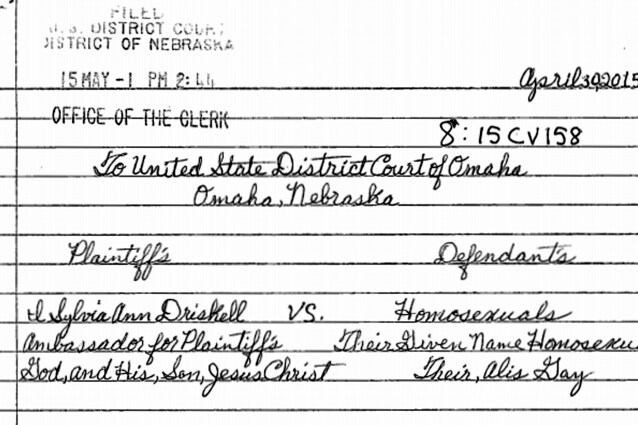 FILED
U.S. DISTRICT COURT
DISTRICT OF NEBRASKA
15 MAY -1 PM 2:44
April 30, 2015
OFFICE OF THE CLERK
8:15CV158
To United State District Court of Omaha
Omaha, Nebraska
Plaintiff's Defendant's
I Sylvia Ann Driskell VS. Homosexuals
Ambassador for Plaintiff's Their Given Name Homosexu
God, and His, Son, Jesus Christ Their, Alis Gay